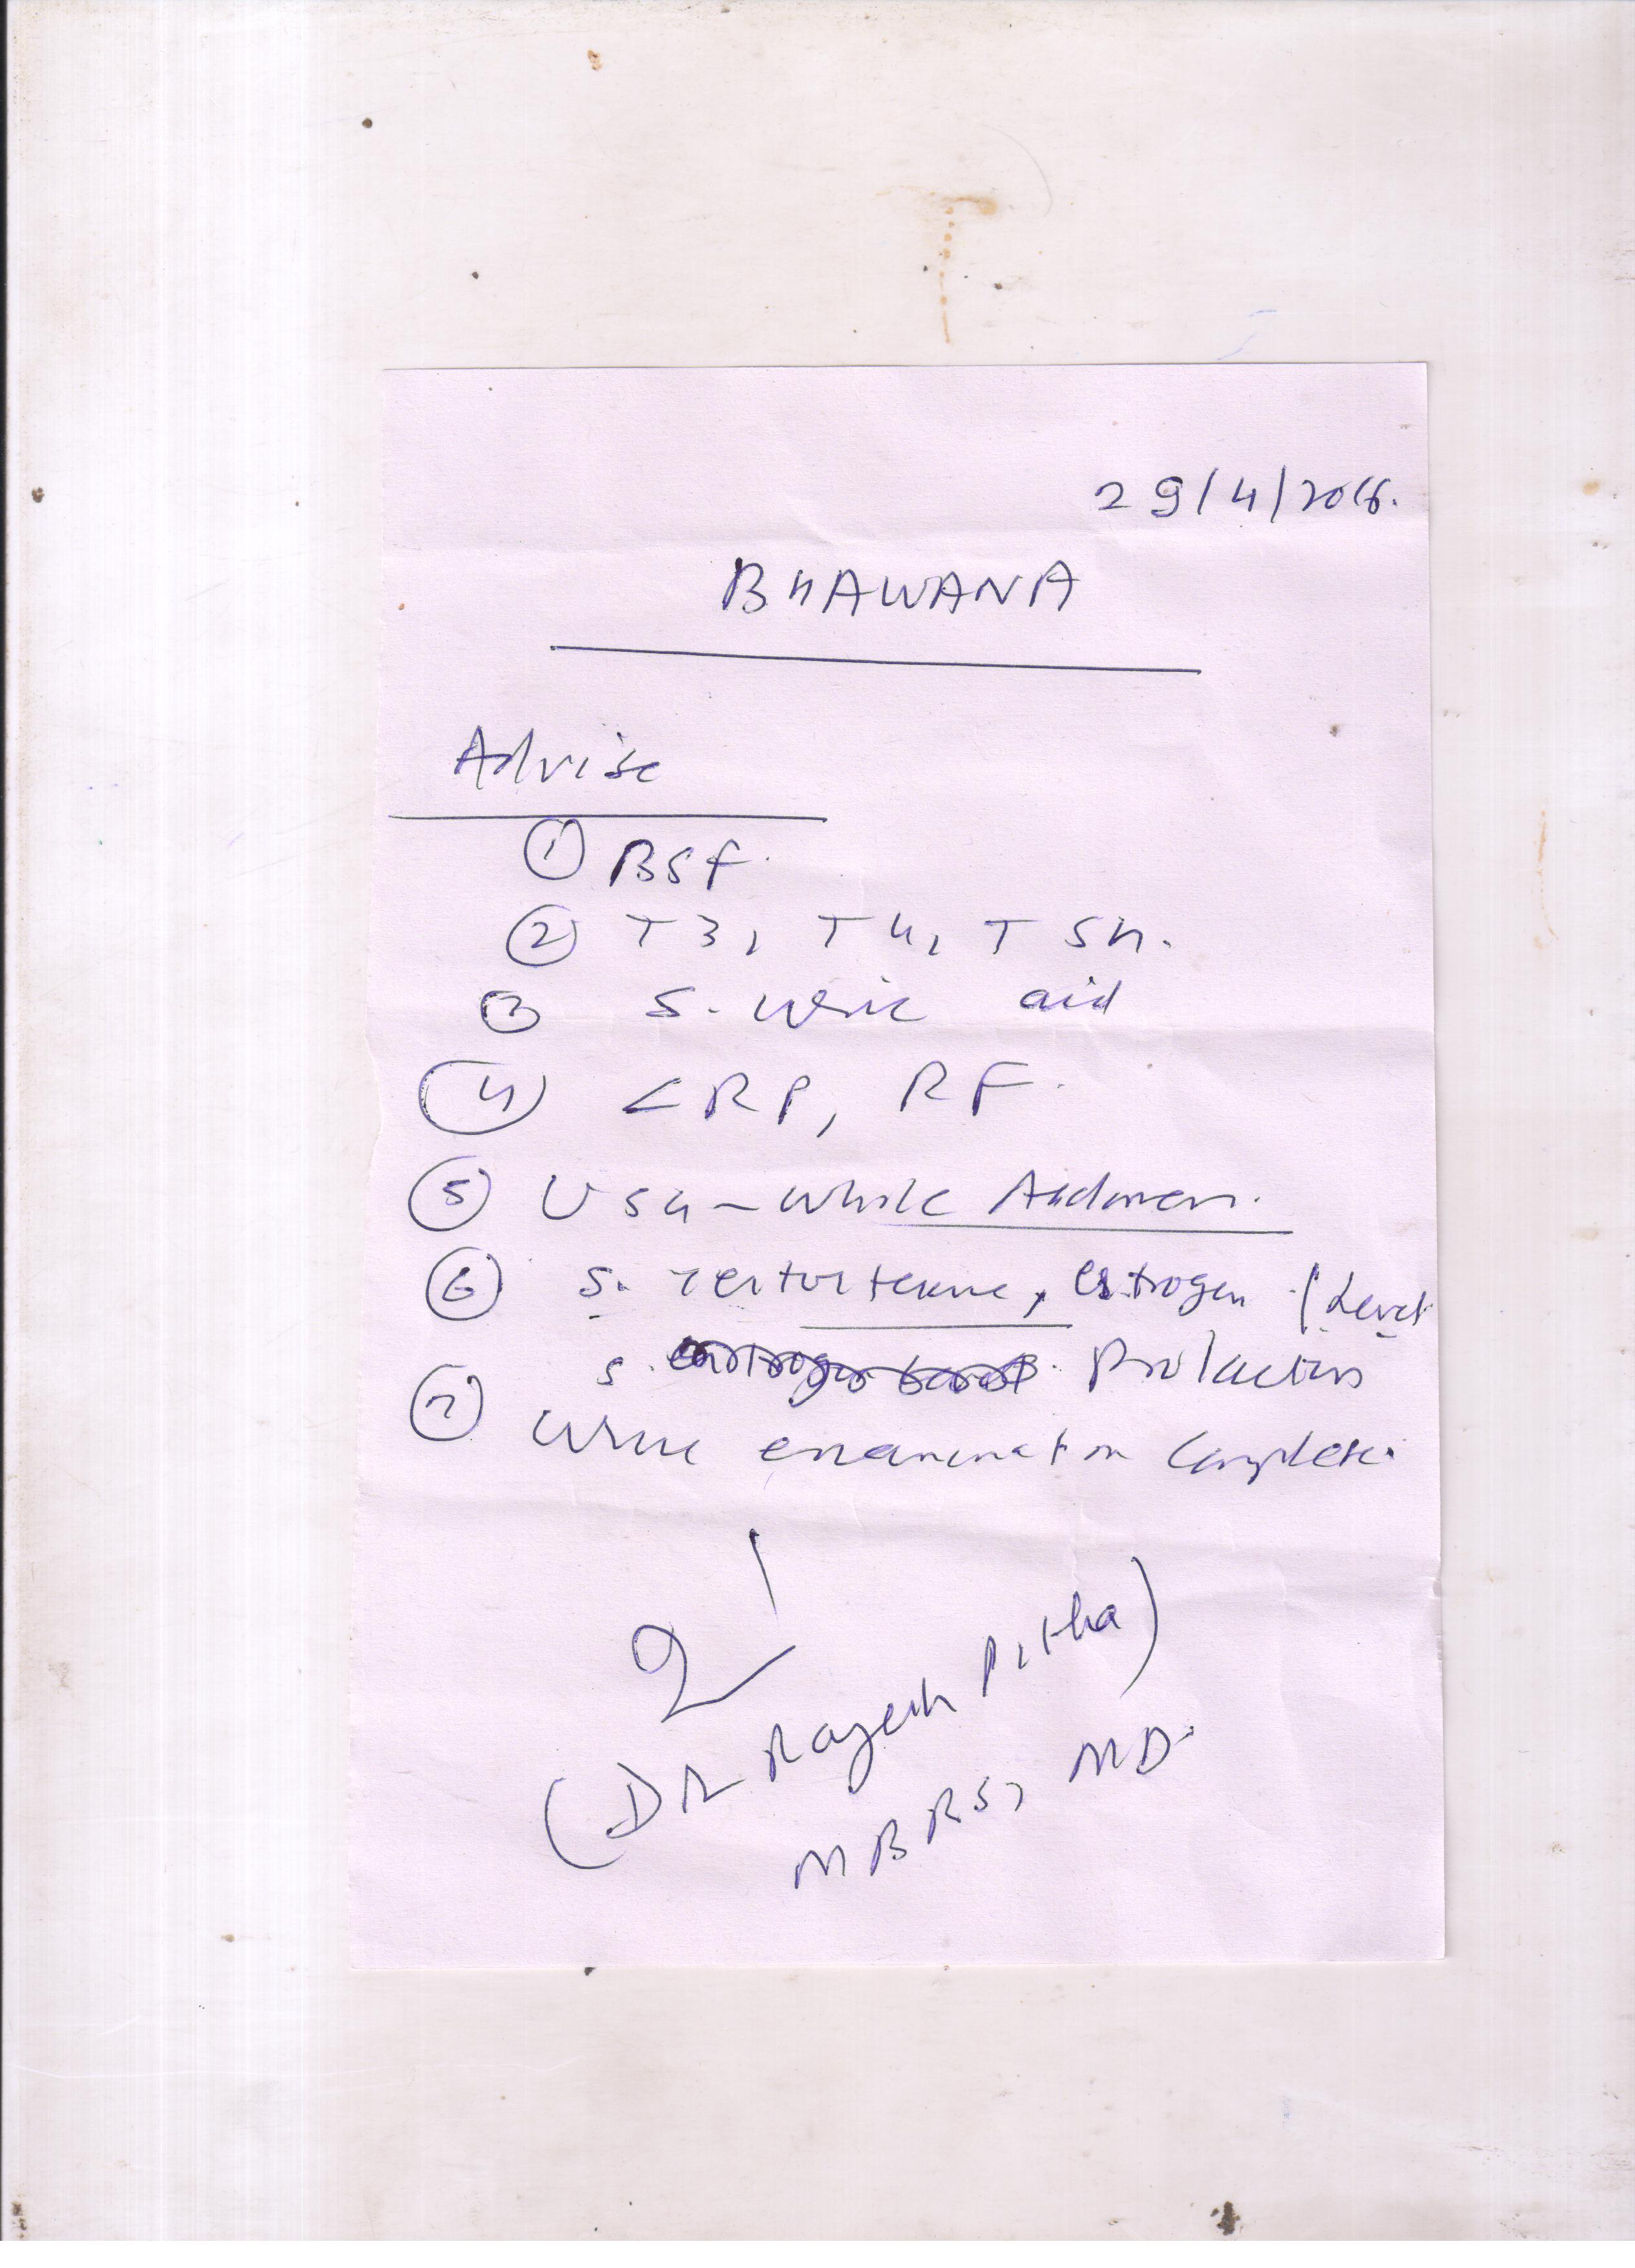 29/4/2016.
BHAWANA
Advise
① BSF.
② T3, T4, TSH.
③ S. Uric acid
④ CRP, RF.
⑤ USG - Whole Abdomen.
⑥ S. Testosterone, Estrogen / Level
S. Prolactin
⑦ Urine examination Complete.
(DR Rajesh Pitha)
MBBS, MD.